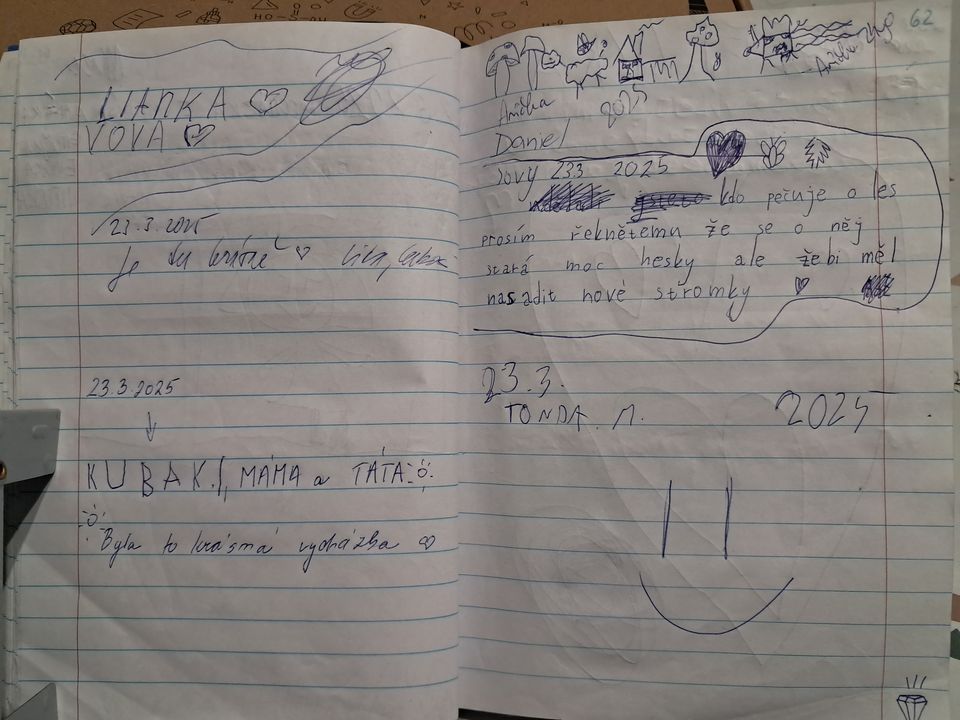 LIANKA ♡
VOVA ♡
23.3.2025
je tu krásně ♡
23.3.2025
↓
KUBA K., MÁMA a TÁTA
Byla to krásná vycházka ♡
62
Anička
Anička 2025
Daniel
Sovy 23.3 2025
kdo pečuje o les
prosím řeknětemu že se o něj
stará moc hesky ale žebi měl
nasadit nové stromky ♡
23.3.
TONDA. M. 2025